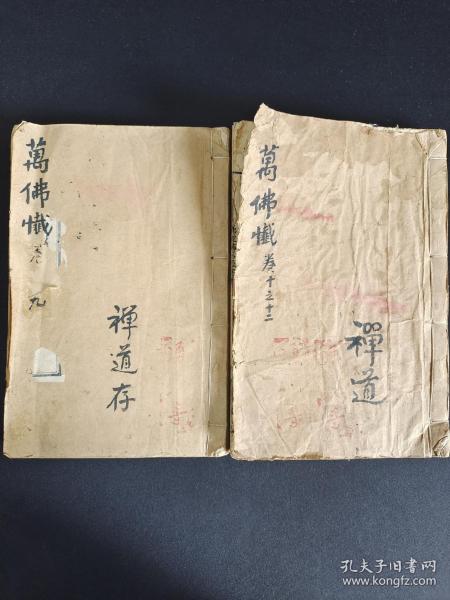 萬佛懺
卷
九
禅道存
萬佛懺
卷十之十二
禪道
孔夫子旧书网
www.kongfz.com